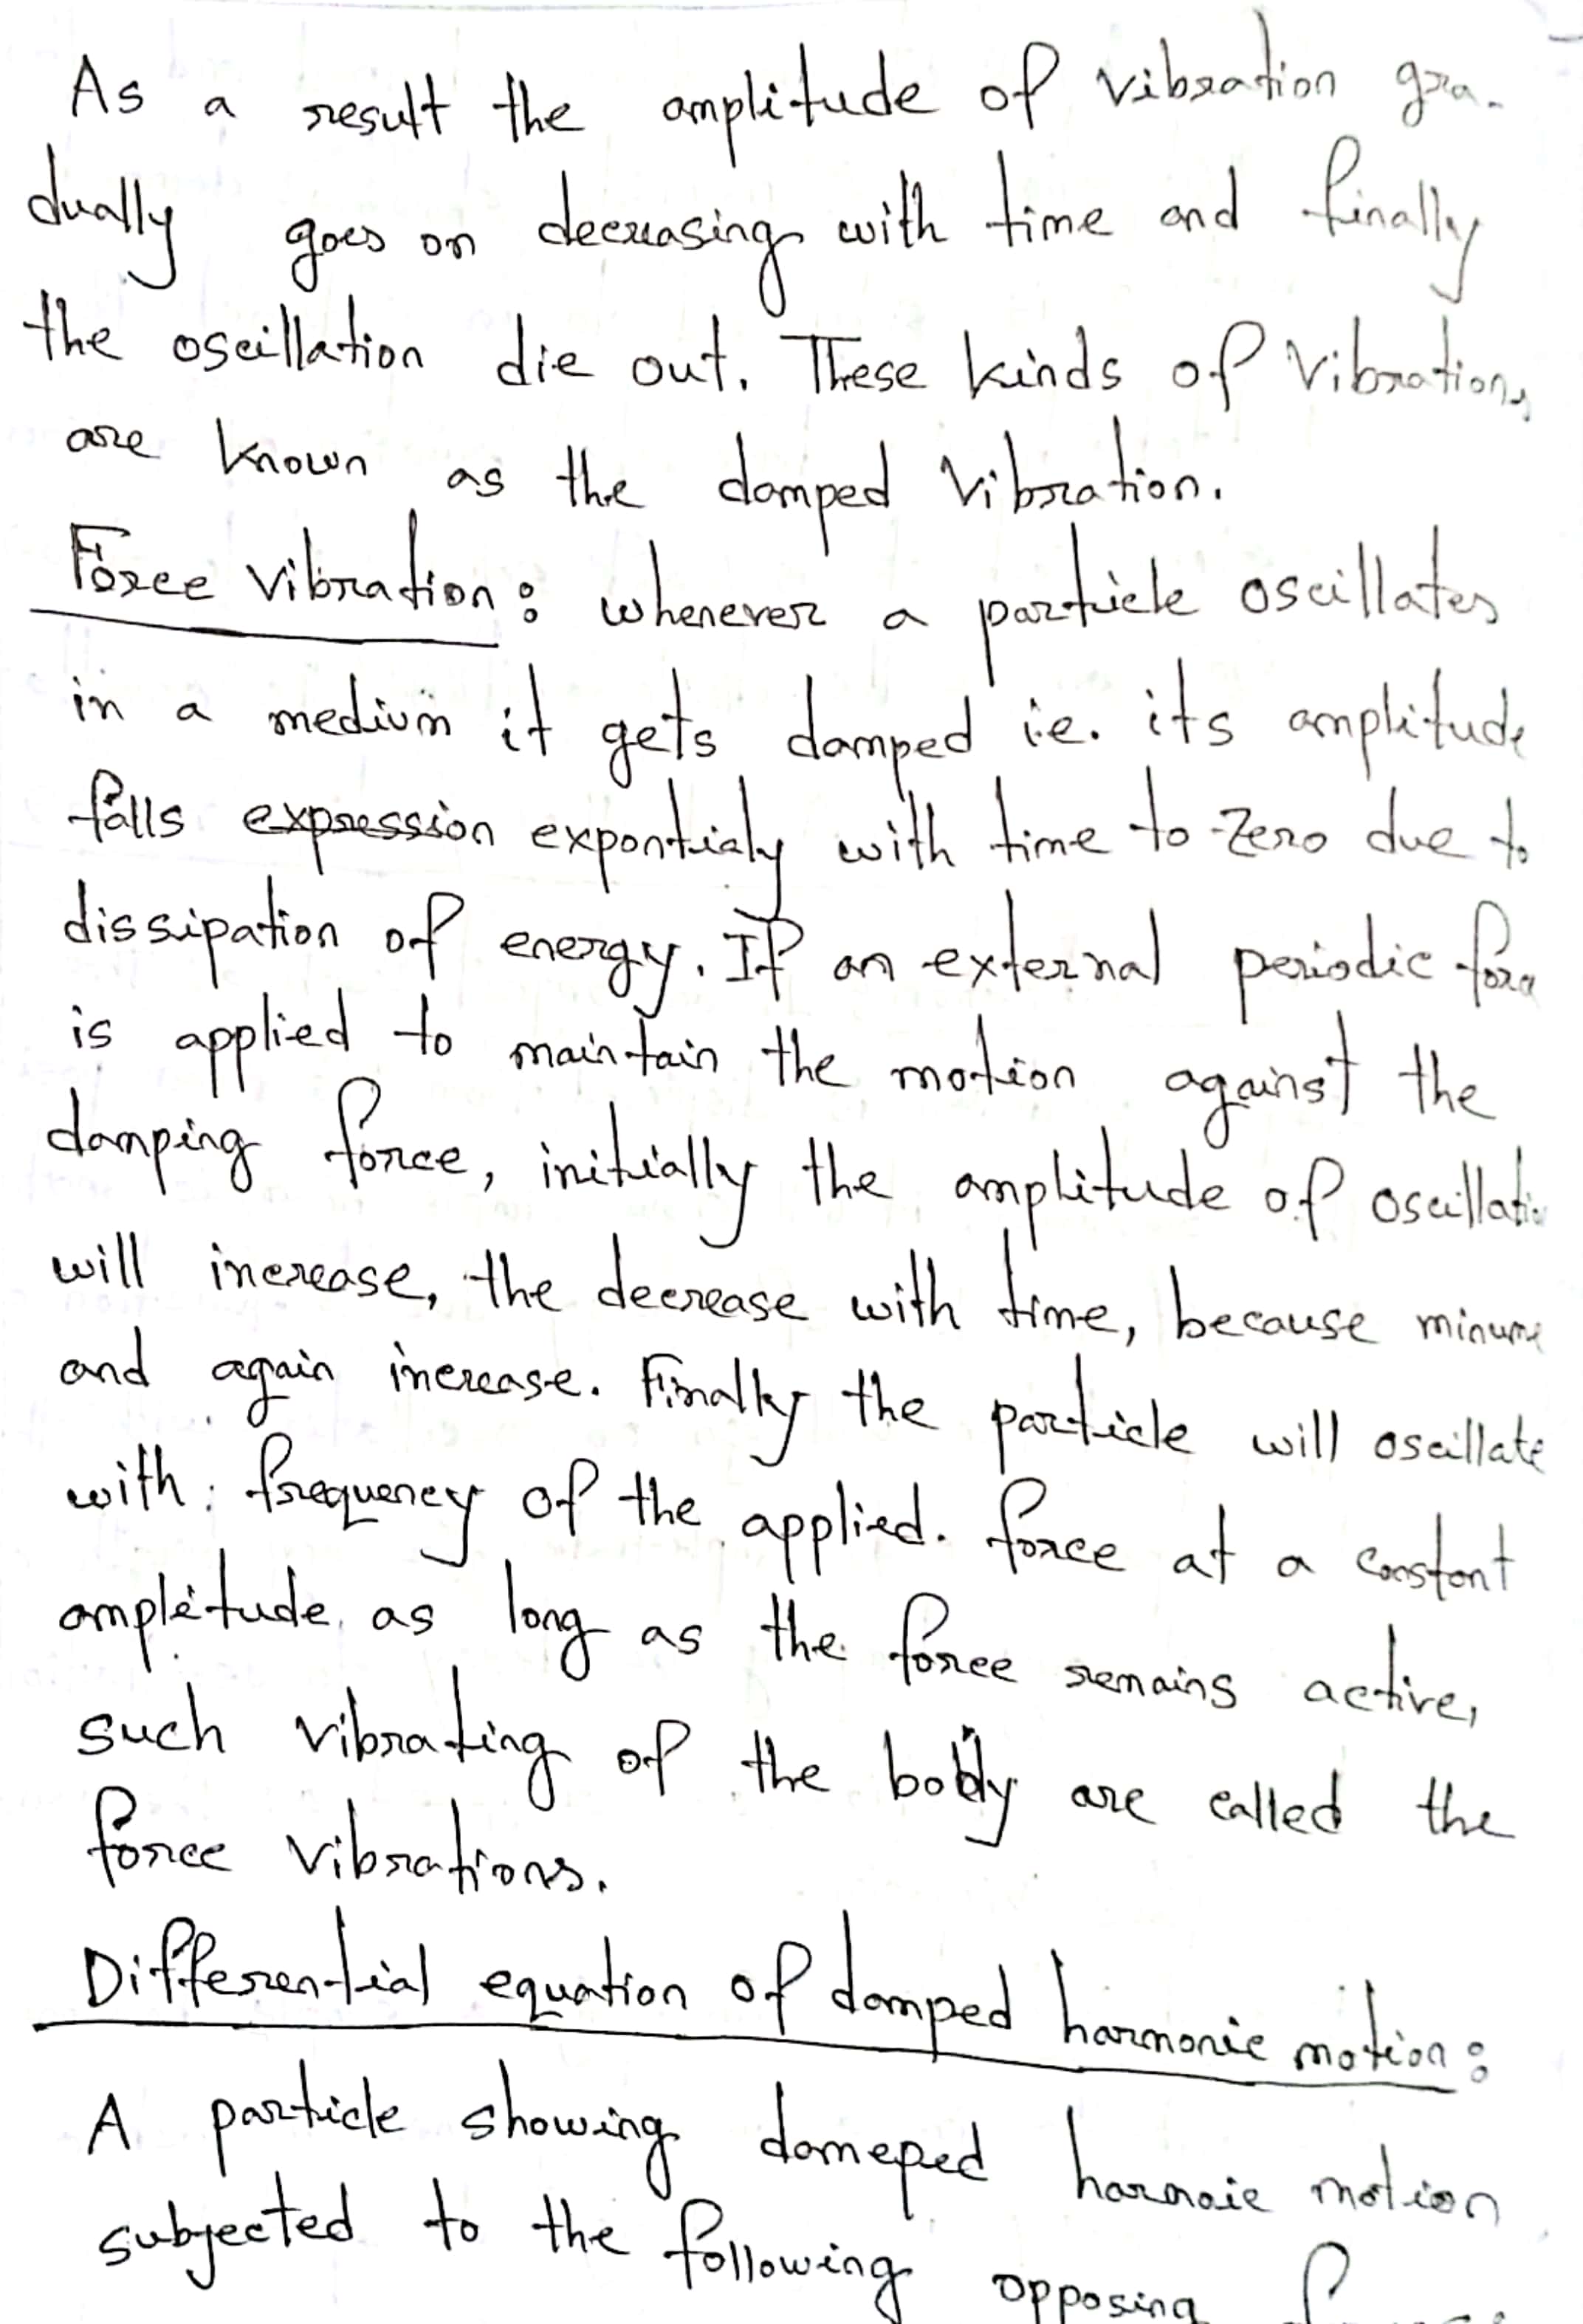 As a result the amplitude of vibration gra-
dually goes on decreasing with time and finally
the oscillation die out. These kinds of Vibrations
are known as the damped Vibration.
Force Vibration: whenever a particle oscillates
in a medium it gets damped i.e. its amplitude
falls expression expontialy with time to zero due to
dissipation of energy. If an external periodic force
is applied to maintain the motion against the
damping force, initially the amplitude of oscillatio
will increase, the decrease with time, because minum
and again increase. Finally the particle will oscillate
with frequency of the applied. force at a constant
amplitude as long as the force remains active,
such vibrating of the body are called the
force vibrations.
Differential equation of damped harmonic motion:
A particle showing domeped harmoic motion
subjected to the following opposing